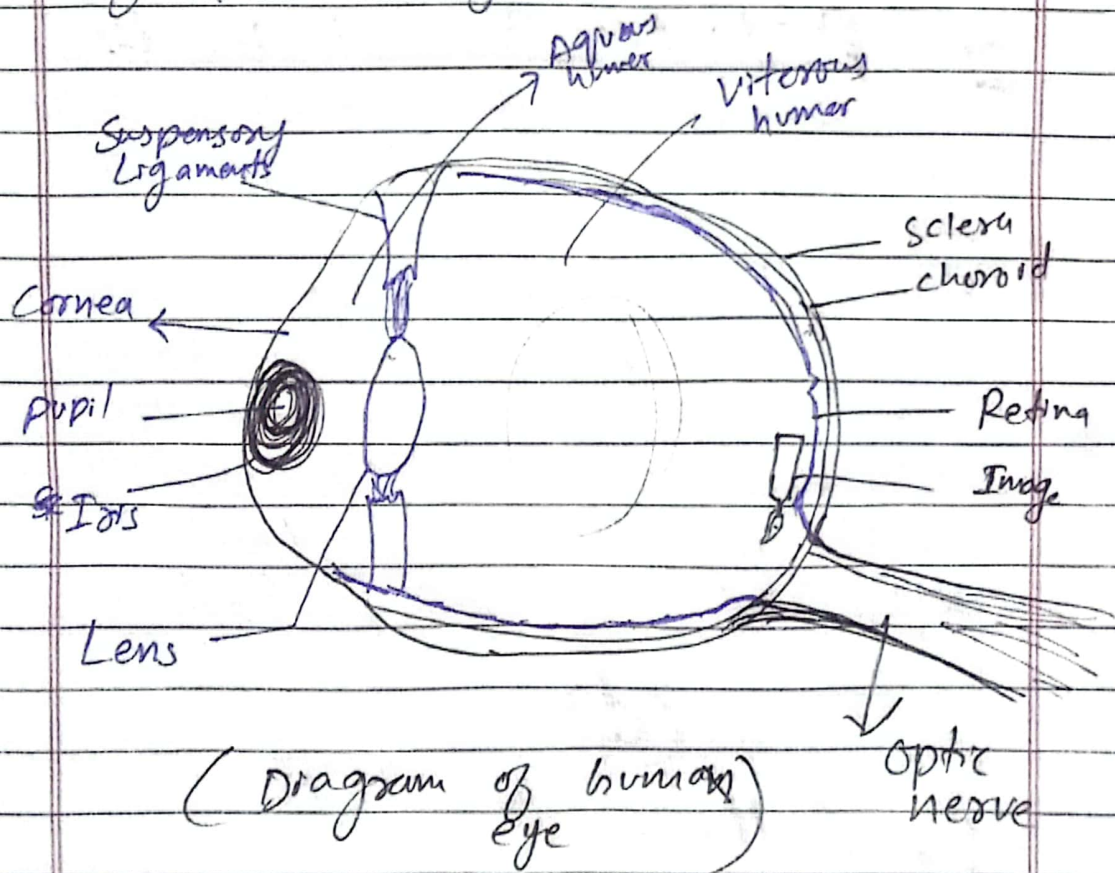 Aquous
humer
Viterous
humer
Suspensory
Ligaments
Sclera
choroid
Cornea
Pupil
Retina
Image
Iris
Lens
Optic
nerve
(Diagram of human
eye)